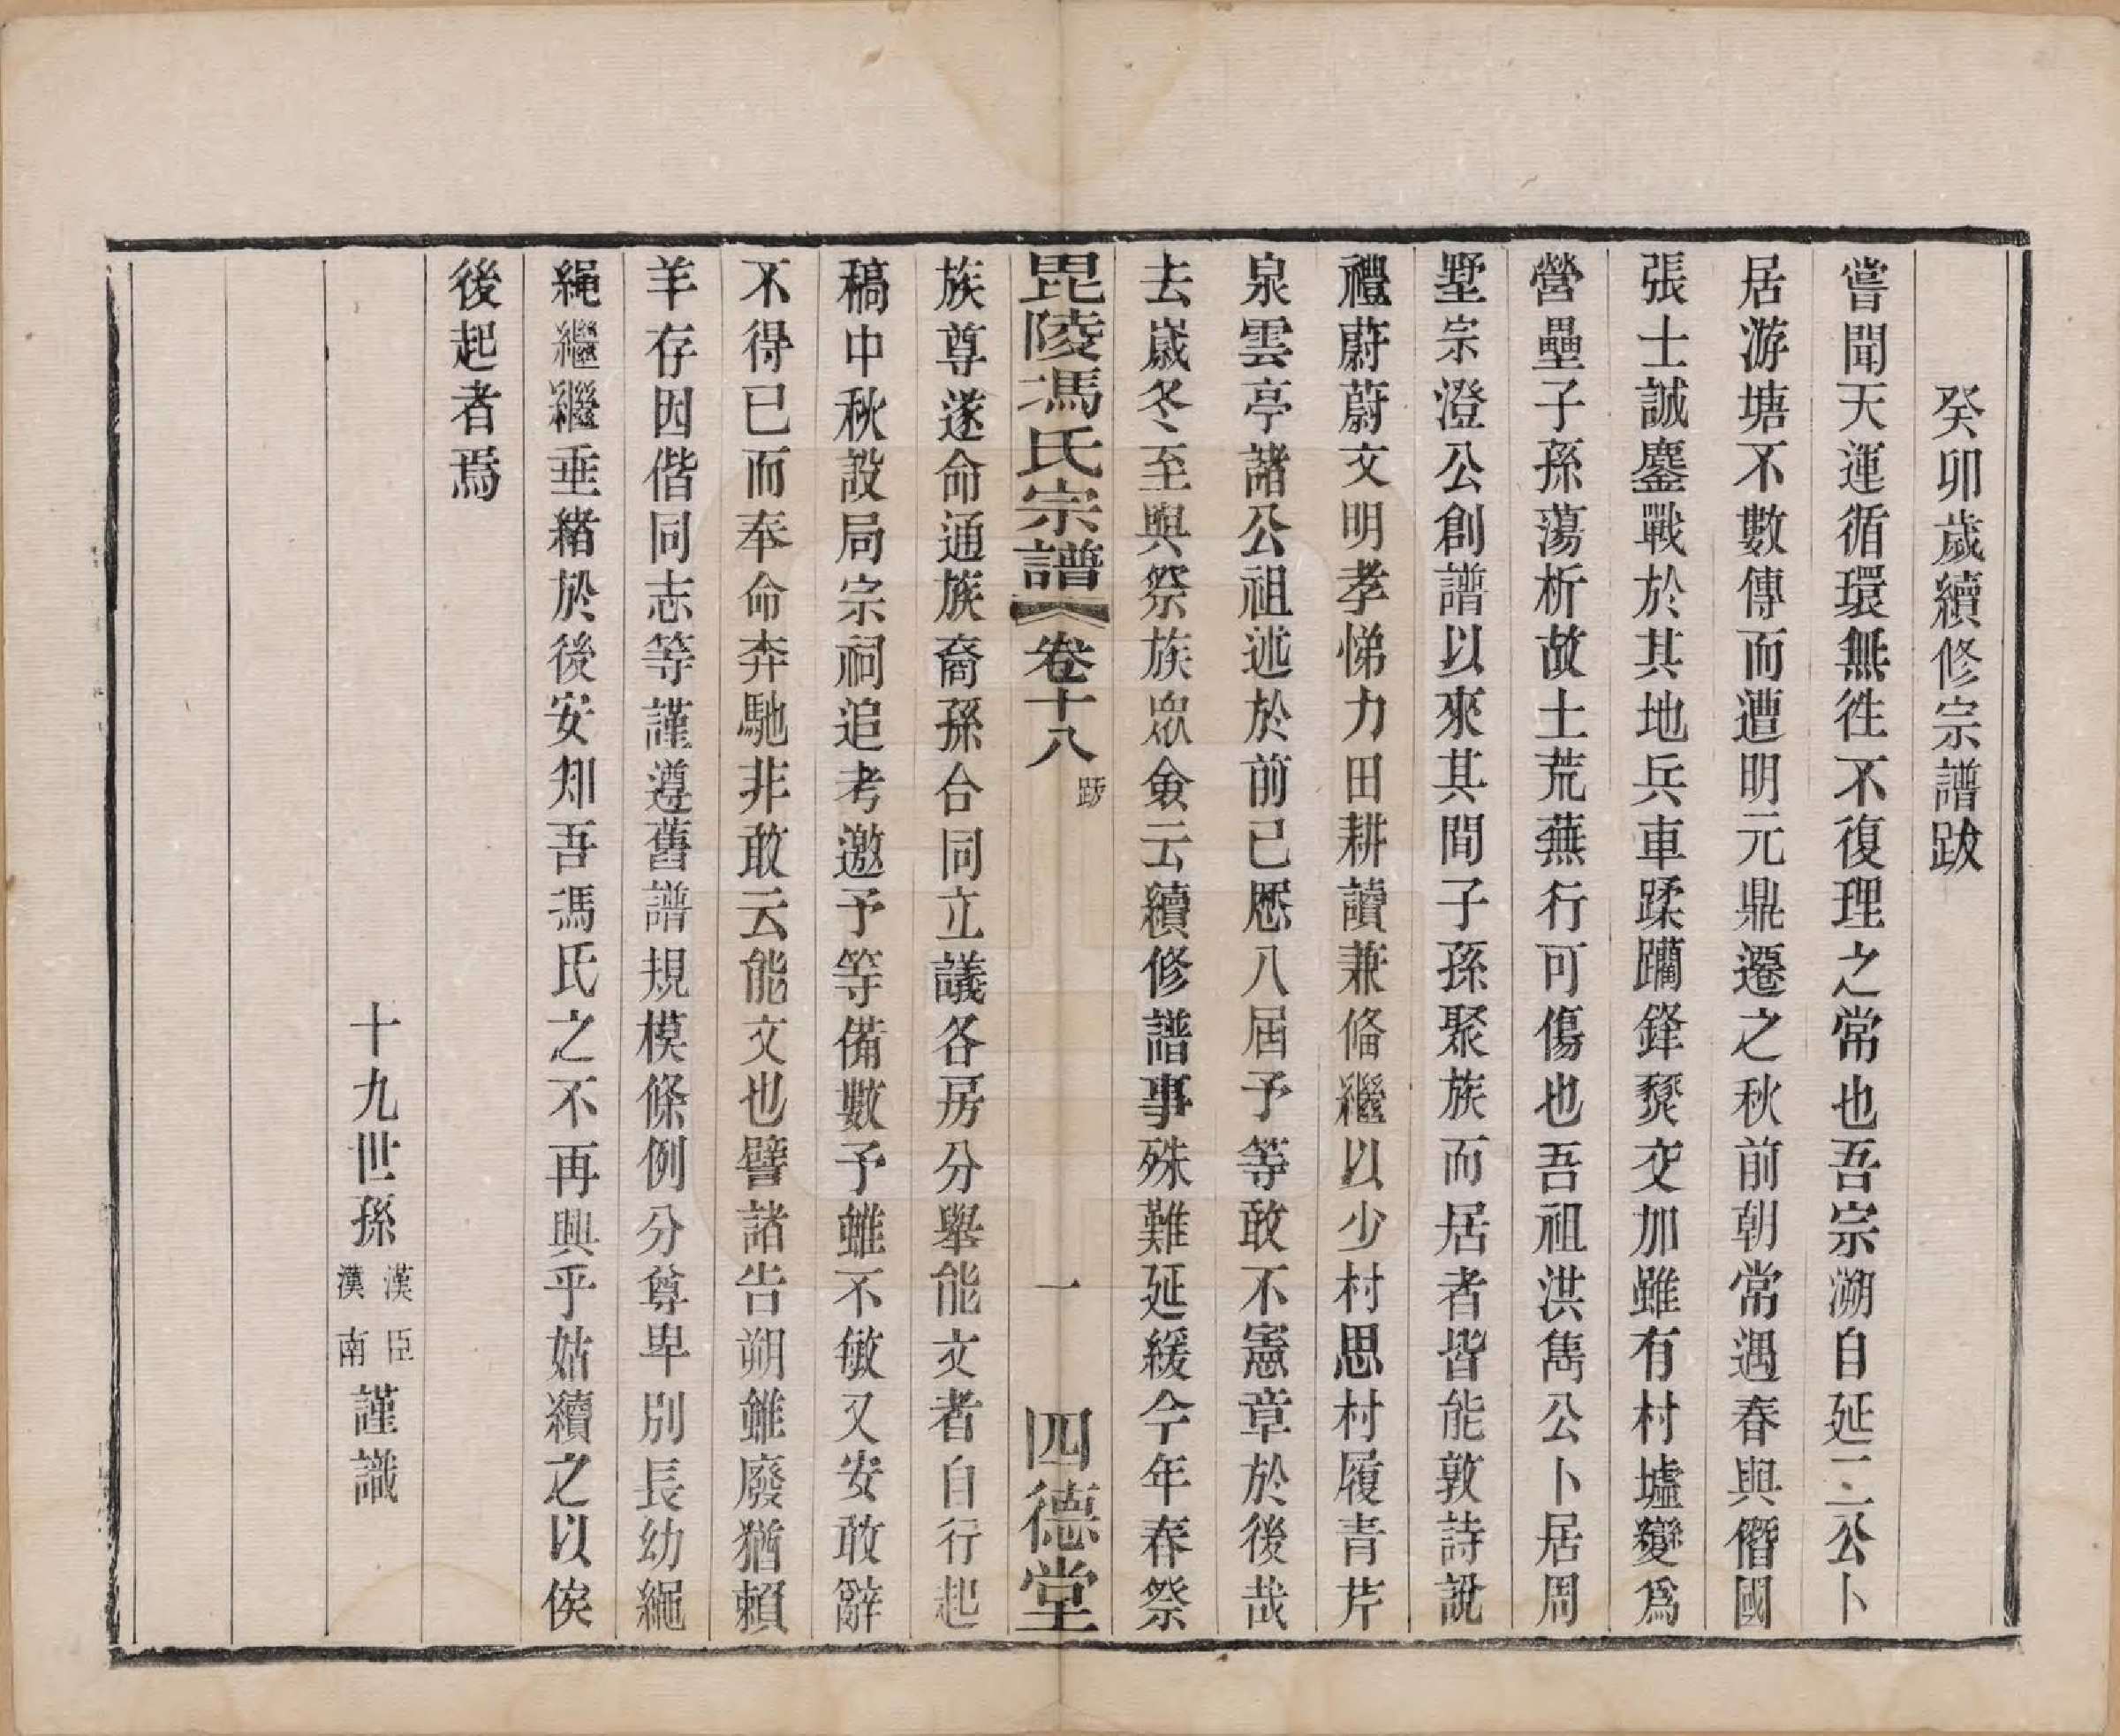 癸卯歲續修宗譜跋
嘗聞天運循環無徃不復理之常也吾宗溯自延二公卜
居游塘不數傳而遭明元鼎遷之秋前朝常遇春與僭國
張士誠鏖戰於其地兵車蹂躪鋒燹交加雖有村墟變爲
營壘子孫蕩析故土荒蕪行可傷也吾祖洪雋公卜居周
墅宗澄公創譜以來其間子孫聚族而居者皆能敦詩說
禮蔚蔚文明孝悌力田耕讀兼俻繼以少村思村履青芹
泉雲亭諸公祖述於前已歷八屆予等敢不憲章於後哉
去歲冬至與祭族眾僉云續修譜事殊難延緩今年春祭
毘陵馮氏宗譜 卷十八 跋 一 四德堂
族尊遂命通族裔孫合同立議各房分舉能文者自行起
稿中秋設局宗祠追考邀予等備數予雖不敏又安敢辭
不得已而奉命奔馳非敢云能文也譬諸告朔雖廢猶賴
羊存因偕同志等謹遵舊譜規模條例分尊卑別長幼繩
繩繼繼垂緒於後安知吾馮氏之不再興乎姑續之以俟
後起者焉
十九世孫 漢臣 漢南 謹識